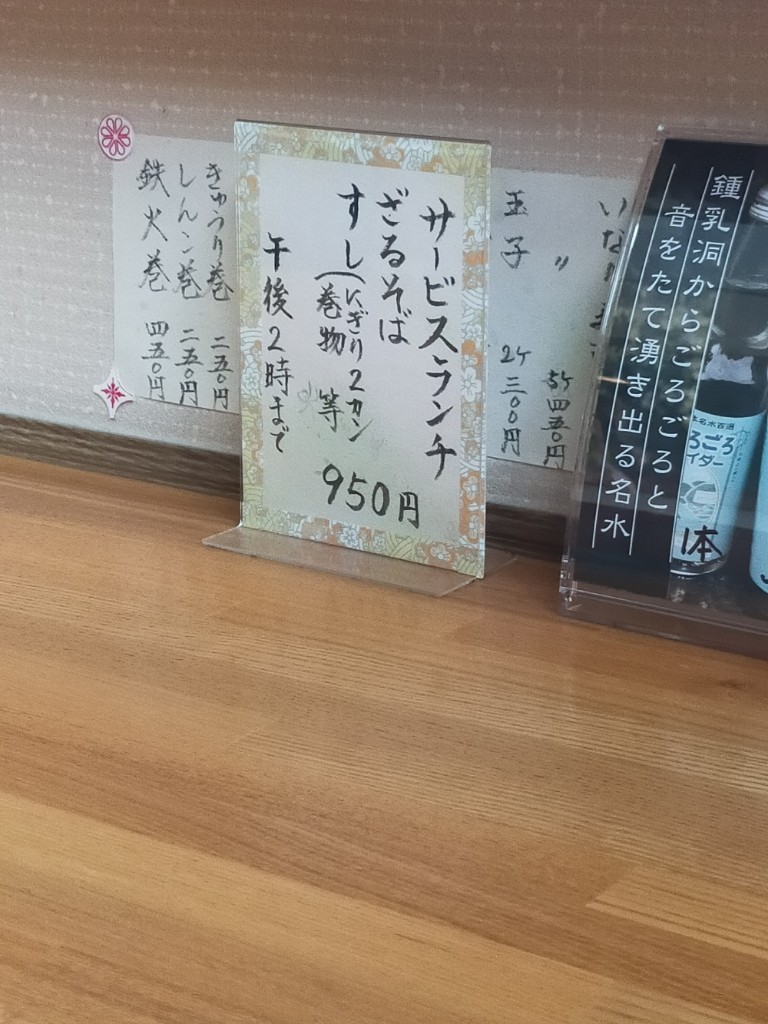 サービスランチ
ざるそば
すし(にぎり2カン
巻物 等
950円
午後2時まで
きゅうり巻 二五〇円
しんこ巻 二五〇円
鉄火巻 四五〇円
いなり
〃 5ケ 四五〇円
玉子 2ケ 三〇〇円
鍾乳洞からごろごろと
音をたて湧き出る名水
ろごろ
イダー
体